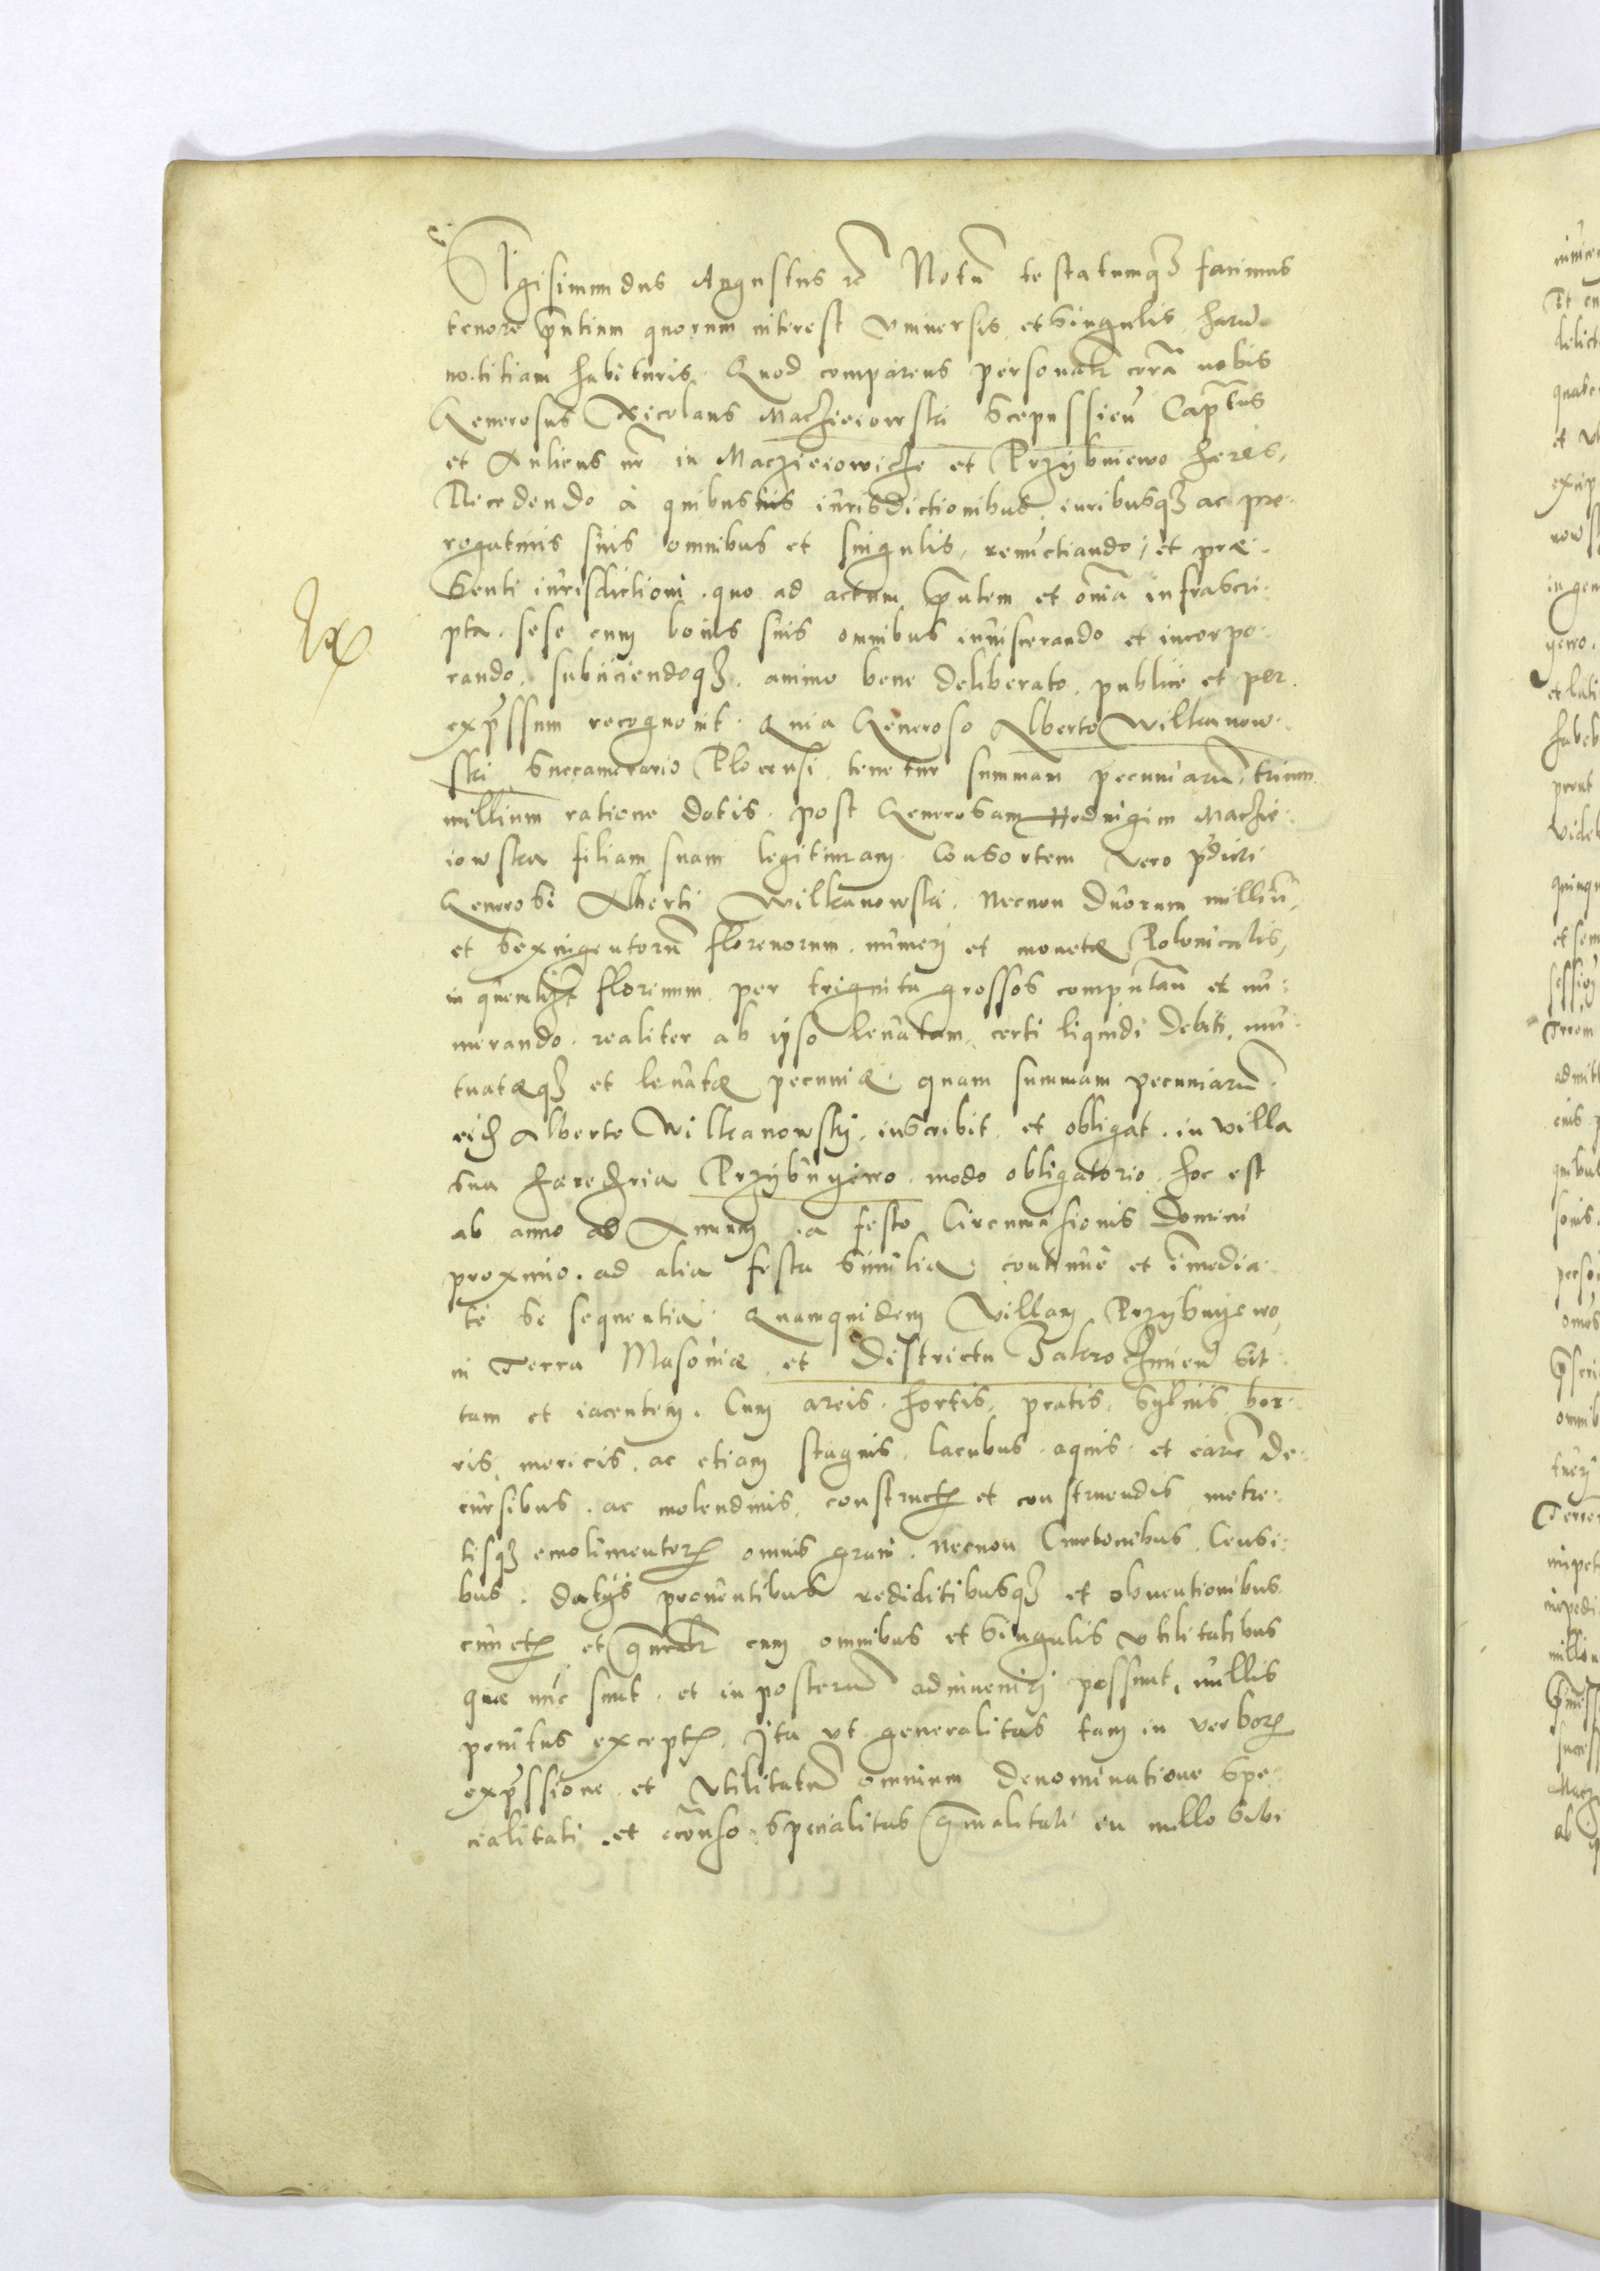 Sigismundus Augustus rc̃ Notũ testatumq3 facimus
tenore p̃ntium quorum interest vniuersis et singulis harũ
notitiam habituris. Quod comparens personalr̃ corã nobis
Generosus Nicolaus Maczieiowski Scepussieñ Capt̃us
et Aulicus nr̃ in Maczieiowicze et Przijbniewo heres,
Recedendo à quibusuis iurisdictionibus, iuribusq3 ac pre-
rogatiuis suis omnibus et singulis, renũctiando, et præ-
senti iurisdictioni quo ad actum p̃ntem et om̃ia infrascri-
pta. sese cum bonis suis omnibus inuiscerando et incorpo-
rando, subiiciendoq3. animo bene deliberato. publice et per
exp̃ssum recognouit. Quia Generoso Alberto Wilkanow-
ski Succamerario Plocensi tenetur summam pecuniarũ trium
millium ratione dotis. post Generosam Heduigim Maczie-
iowska filiam suam legitimam. Consortem vero p̃dicti
Generosi Alberti Wilkanowski. Necnon duorum milliũ,
et sexingentorũ florenorum. numeri et monetæ Polonicalis,
in quemlibet florenum per triginta grossos computan̄ et nu-
merando. realiter ab ipso leuatam, certi liquidi debiti, mu-
tuatæq3 et leuatæ pecuniæ. quam summam pecuniarũ
eid Alberto Wilkanowskij. inscribit et obligat. in villa
sua hæreditaria Przijbuyewo. modo obligatorio. hoc est
ab anno ad Annum. a festo Circumcisionis Domini
proximo. ad alia festa similia. continue et im̃edia-
te se sequentia. Quamquidem Villam Przybuyewo,
in Terra Masouiæ et Districtu Zakroczimień sit-
tam et iacentem. Cum areis. hortis, pratis, syluis bor-
ris, mericis. ac etiam stagnis, lacubus. aquis. et earũ de-
cursibus. ac molendinis, constructis et construendis metre-
tisq3 emolimentorũ omnis grani. Necnon Cmetonibus. Censi-
bus. datijs prouentibus redditibusq3 et obuentionibus
cunctis et gñralr̃ cum omnibus et singulis vtilitatibus
quæ nũc sunt. et in posterũ adinueniri possunt, nullis
penitus exceptis. Ita vt generalitas tam in verborũ
exp̃ssione et vtilitatũ omnium denominatione spe-
cialitati. et ecõuerso. specialitas gñralitati in nullo sibi